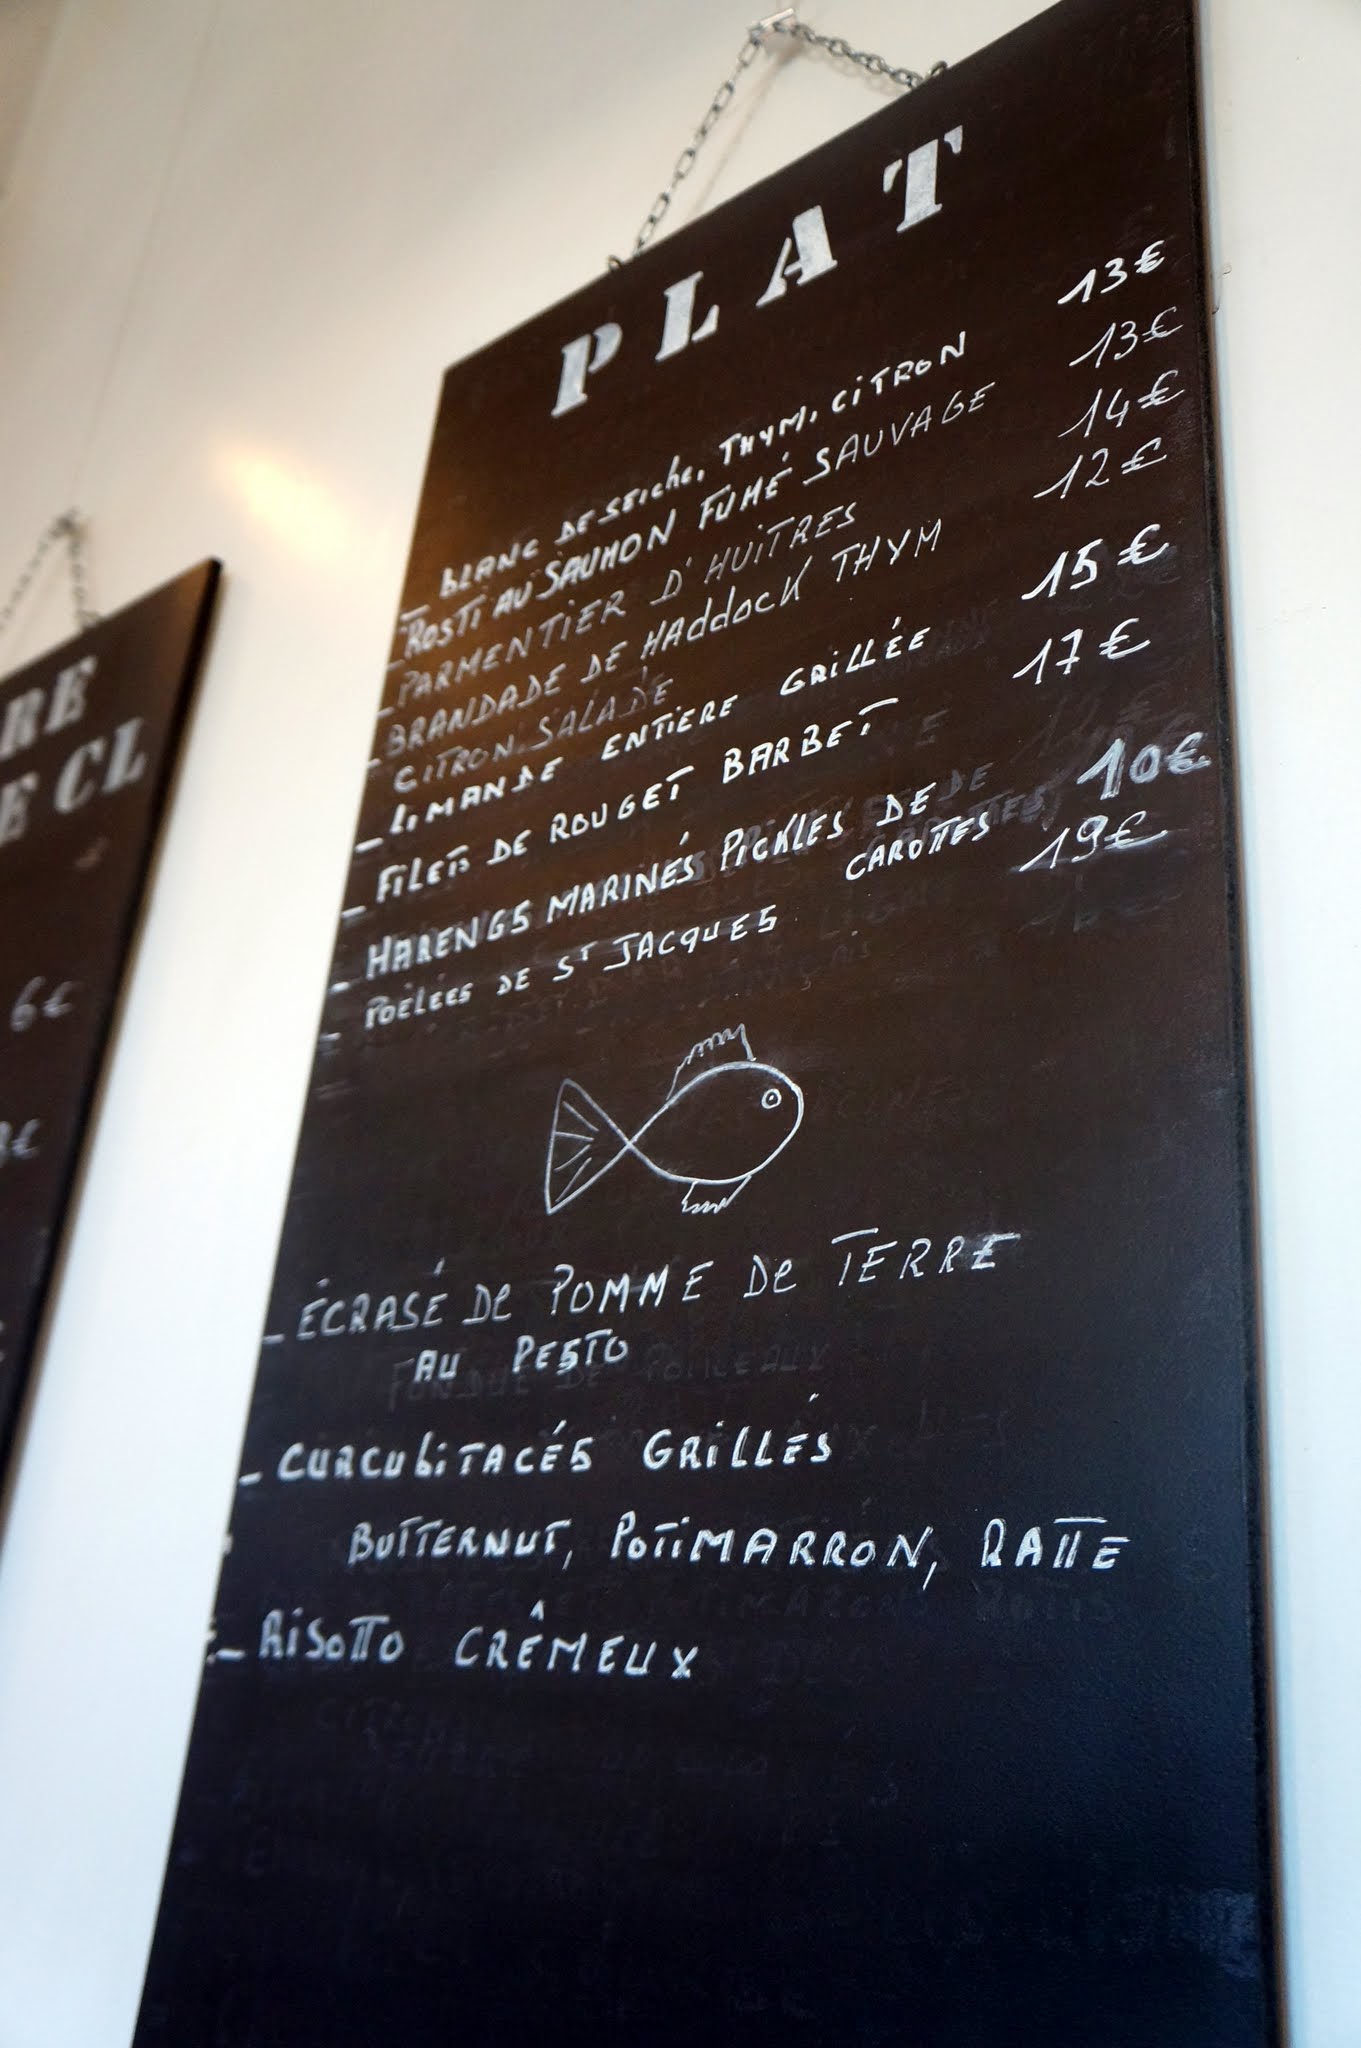 PLAT
- BLANC DE SEICHE, THYM, CITRON 13€
- ROSTI AU SAUMON FUMÉ SAUVAGE 13€
- PARMENTIER D'HUITRES 14€
- BRANDADE DE HADDOCK THYM 12€
CITRON. SALADE
- LIMANDE ENTIERE GRILLÉE 15€
- FILETS DE ROUGET BARBET 17€
- HARENGS MARINÉS PICKLES DE 10€
CAROTTES
- POÊLÉES DE ST JACQUES 19€
- ÉCRASÉ DE POMME DE TERRE
AU PESTO
- CURCUBITACÉS GRILLÉS
BUTTERNUT, POTIMARRON, RATTE
- RISOTTO CRÊMEUX
RE
E CL
6€
8€